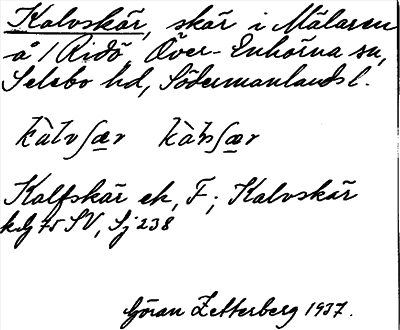 Kalvskär, skär i Mälaren
å /Ridö, Över-Enhörna sn,
Selebo hd, Södermanlands l.
kàlvʃær kàlsʃær
Kalfskär ek, F; Kalvskär
kg 75 SV, Sj 238
Göran Zetterberg 1937.